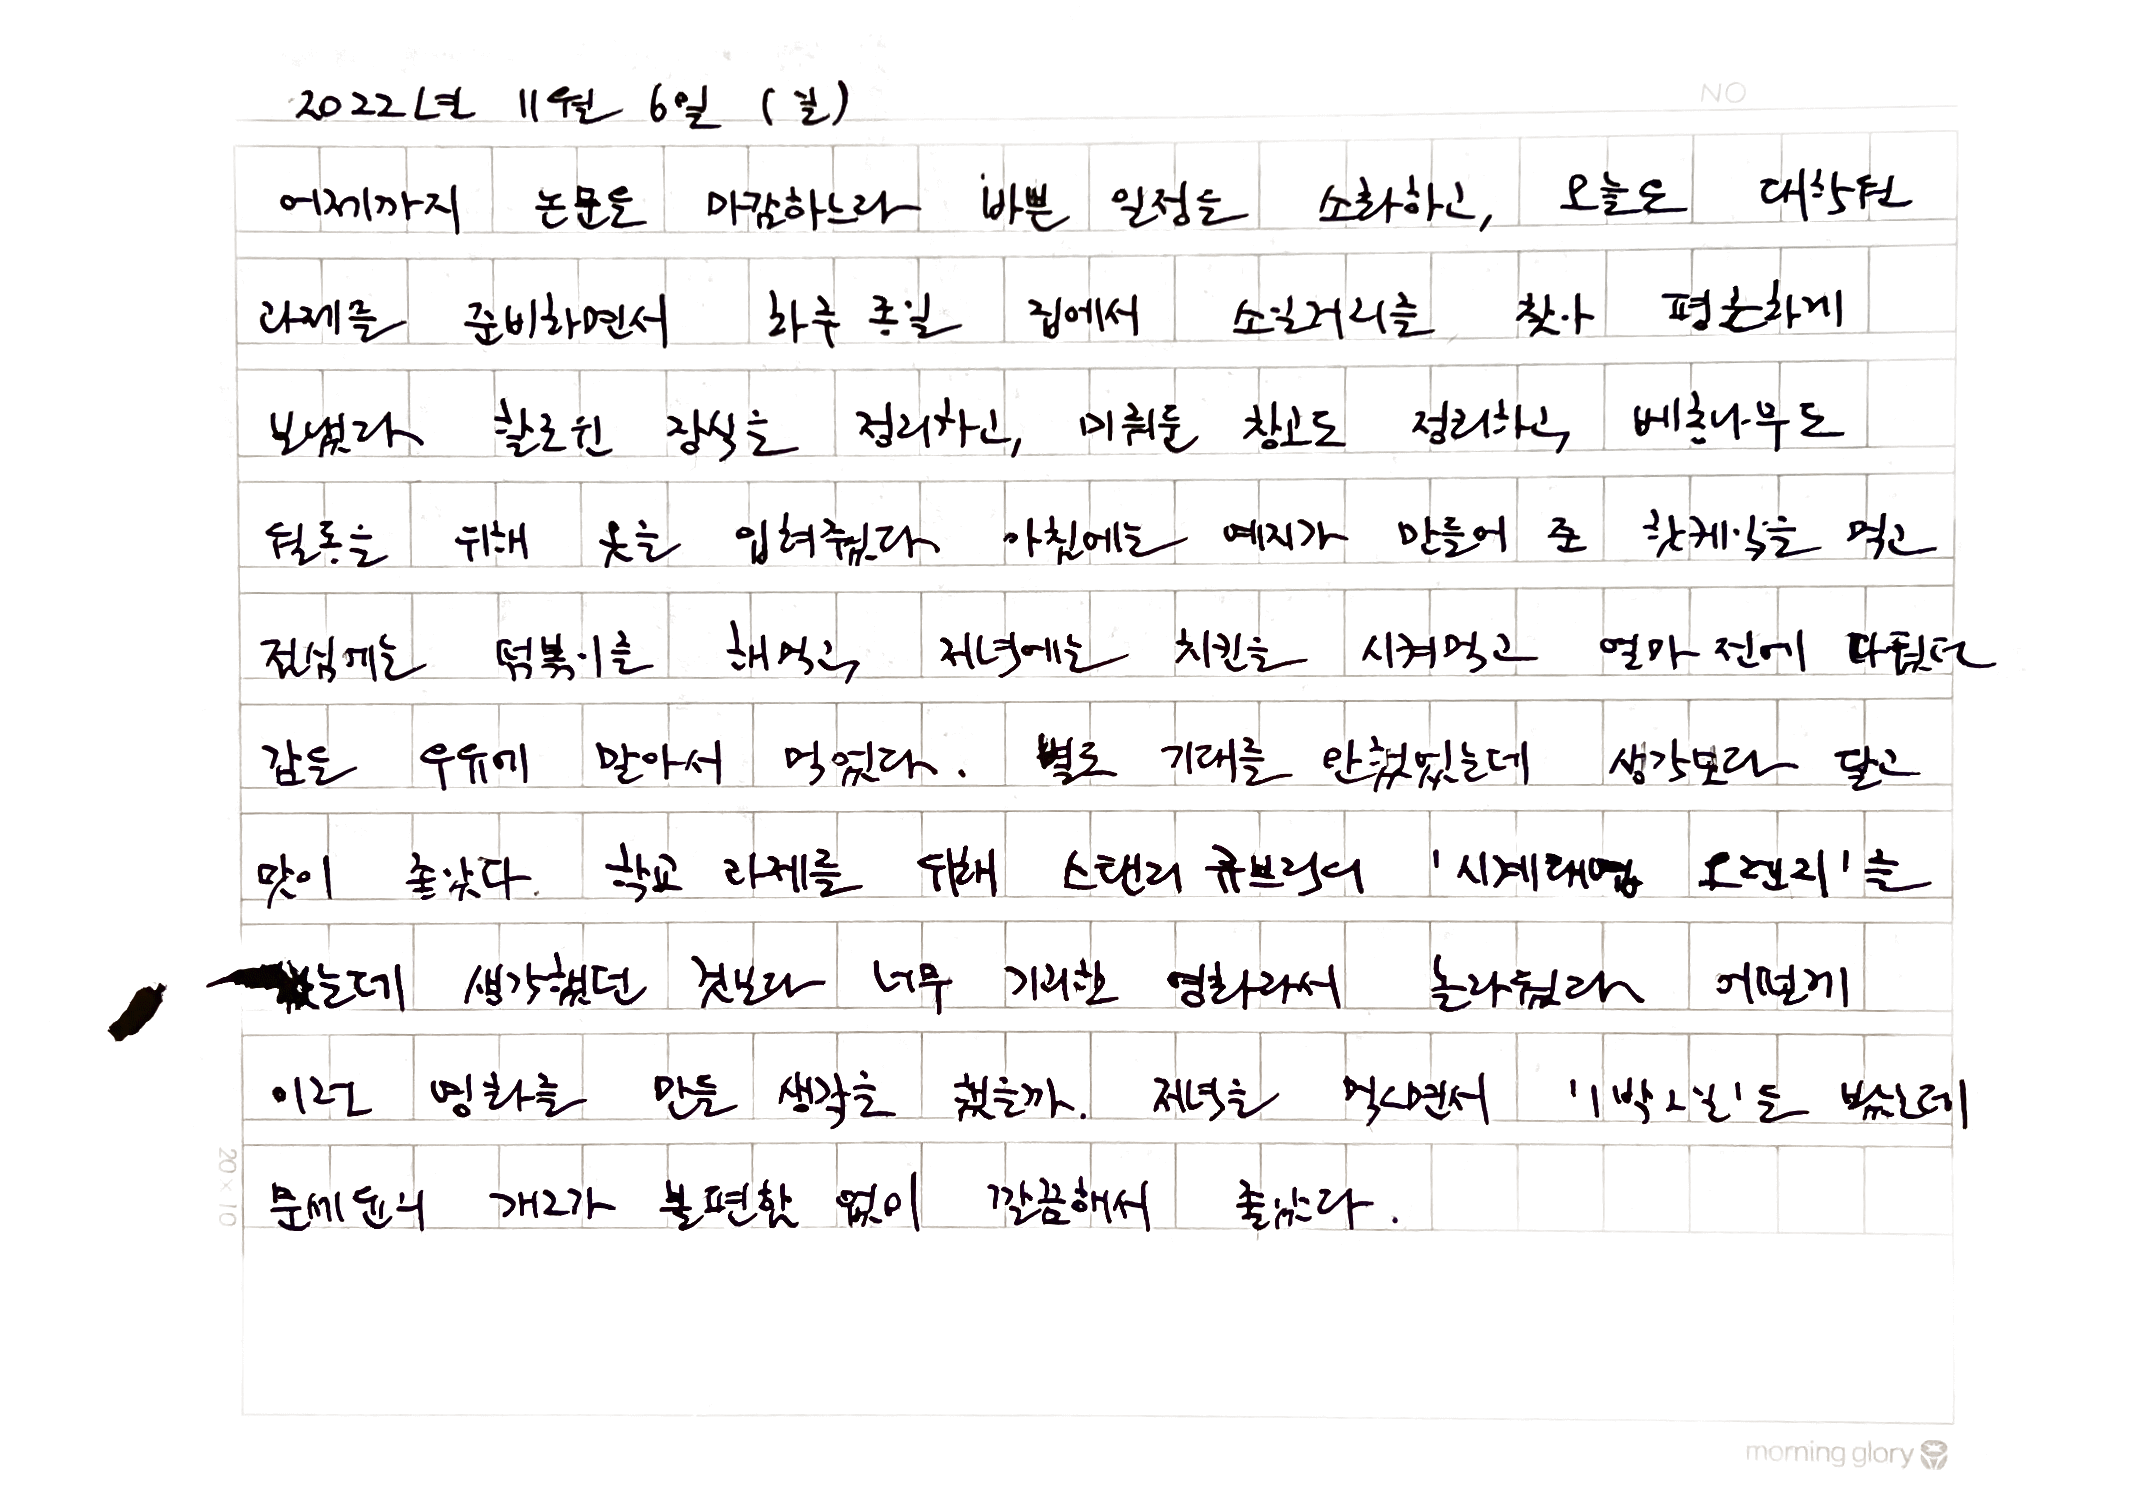 2022년 11월 6일 (일)
NO
어제까지 논문을 마감하느라 바쁜 일정을 소화하고, 오늘도 대학원
과제를 준비하면서 하루 종일 집에서 소일거리를 찾아 평온하게
보냈다 할로윈 장식을 정리하고, 미뤄둔 창고도 정리하고, 베란나무도
월동을 위해 옷을 입혀줬다 아침에는 예지가 만들어 준 핫케익을 먹고
점심에는 떡볶이를 해먹고, 저녁에는 치킨을 시켜먹고 얼마 전에 따뒀던
감을 우유에 말아서 먹었다. 별로 기대를 안했었는데 생각보다 달고
맛이 좋았다. 학교 과제를 위해 스탠리 큐브릭의 '시계태엽 오렌지'를
는데 생각했던 것보다 너무 기괴한 영화라서 놀라웠다 어떻게
이런 영화를 만들 생각을 했을까. 저녁을 먹으면서 '1박2일'을 봤는데
문세윤의 개그가 불편함 없이 깔끔해서 좋았다.
20 × 10
morning glory